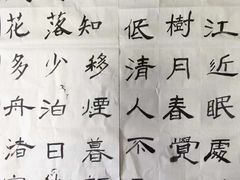 江近眠處
樹月春覺
低清人不
知移煙暮
落少泊日
花多舟渚